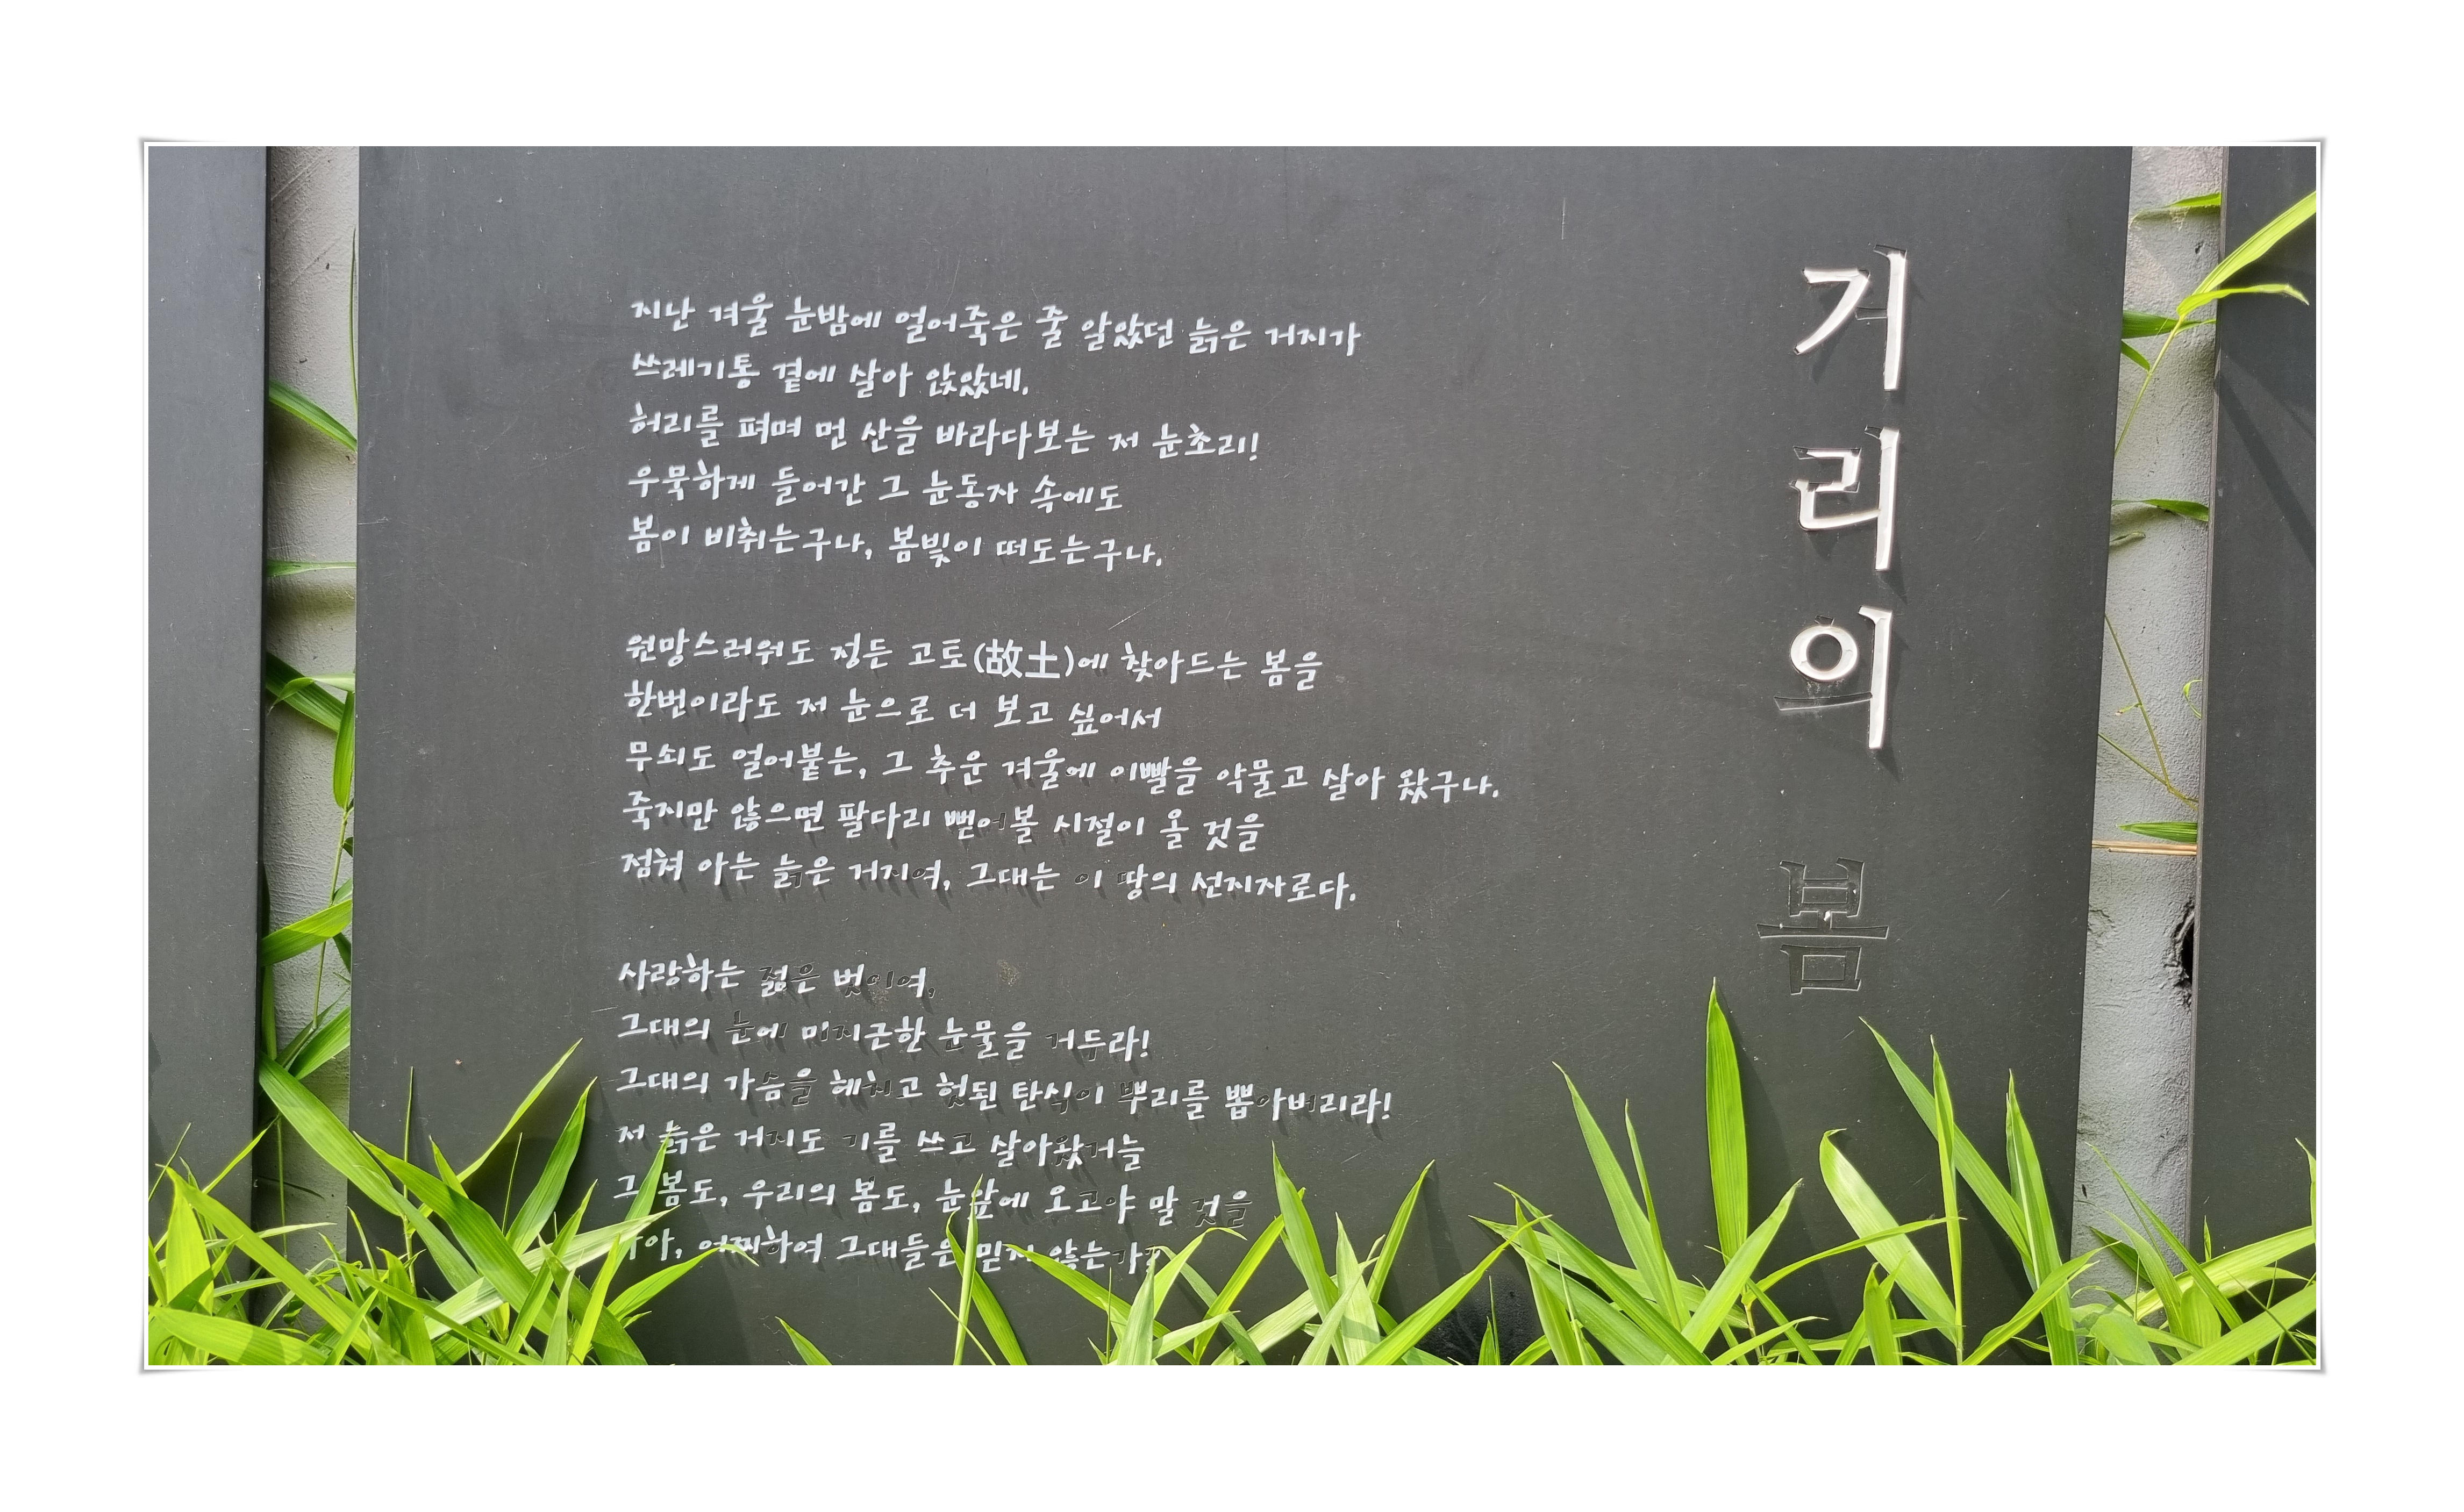 거리의 봄
지난 겨울 눈밤에 얼어죽은 줄 알았던 늙은 거지가
쓰레기통 곁에 살아 앉았네.
허리를 펴며 먼 산을 바라다보는 저 눈초리!
우묵하게 들어간 그 눈동자 속에도
봄이 비취는구나, 봄빛이 떠도는구나.
원망스러워도 정든 고토(故土)에 찾아드는 봄을
한번이라도 저 눈으로 더 보고 싶어서
무쇠도 얼어붙는, 그 추운 겨울에 이빨을 악물고 살아 왔구나.
죽지만 않으면 팔다리 뻗어볼 시절이 올 것을
점쳐 아는 늙은 거지여, 그대는 이 땅의 선지자로다.
사랑하는 젊은 벗이여,
그대의 눈에 미지근한 눈물을 거두라!
그대의 가슴을 헤치고 헛된 탄식이 뿌리를 뽑아버리라!
저 늙은 거지도 기를 쓰고 살아왔거늘
그 봄도, 우리의 봄도, 눈앞에 오고야 말 것을
아아, 어찌하여 그대들은 믿지 않는가?